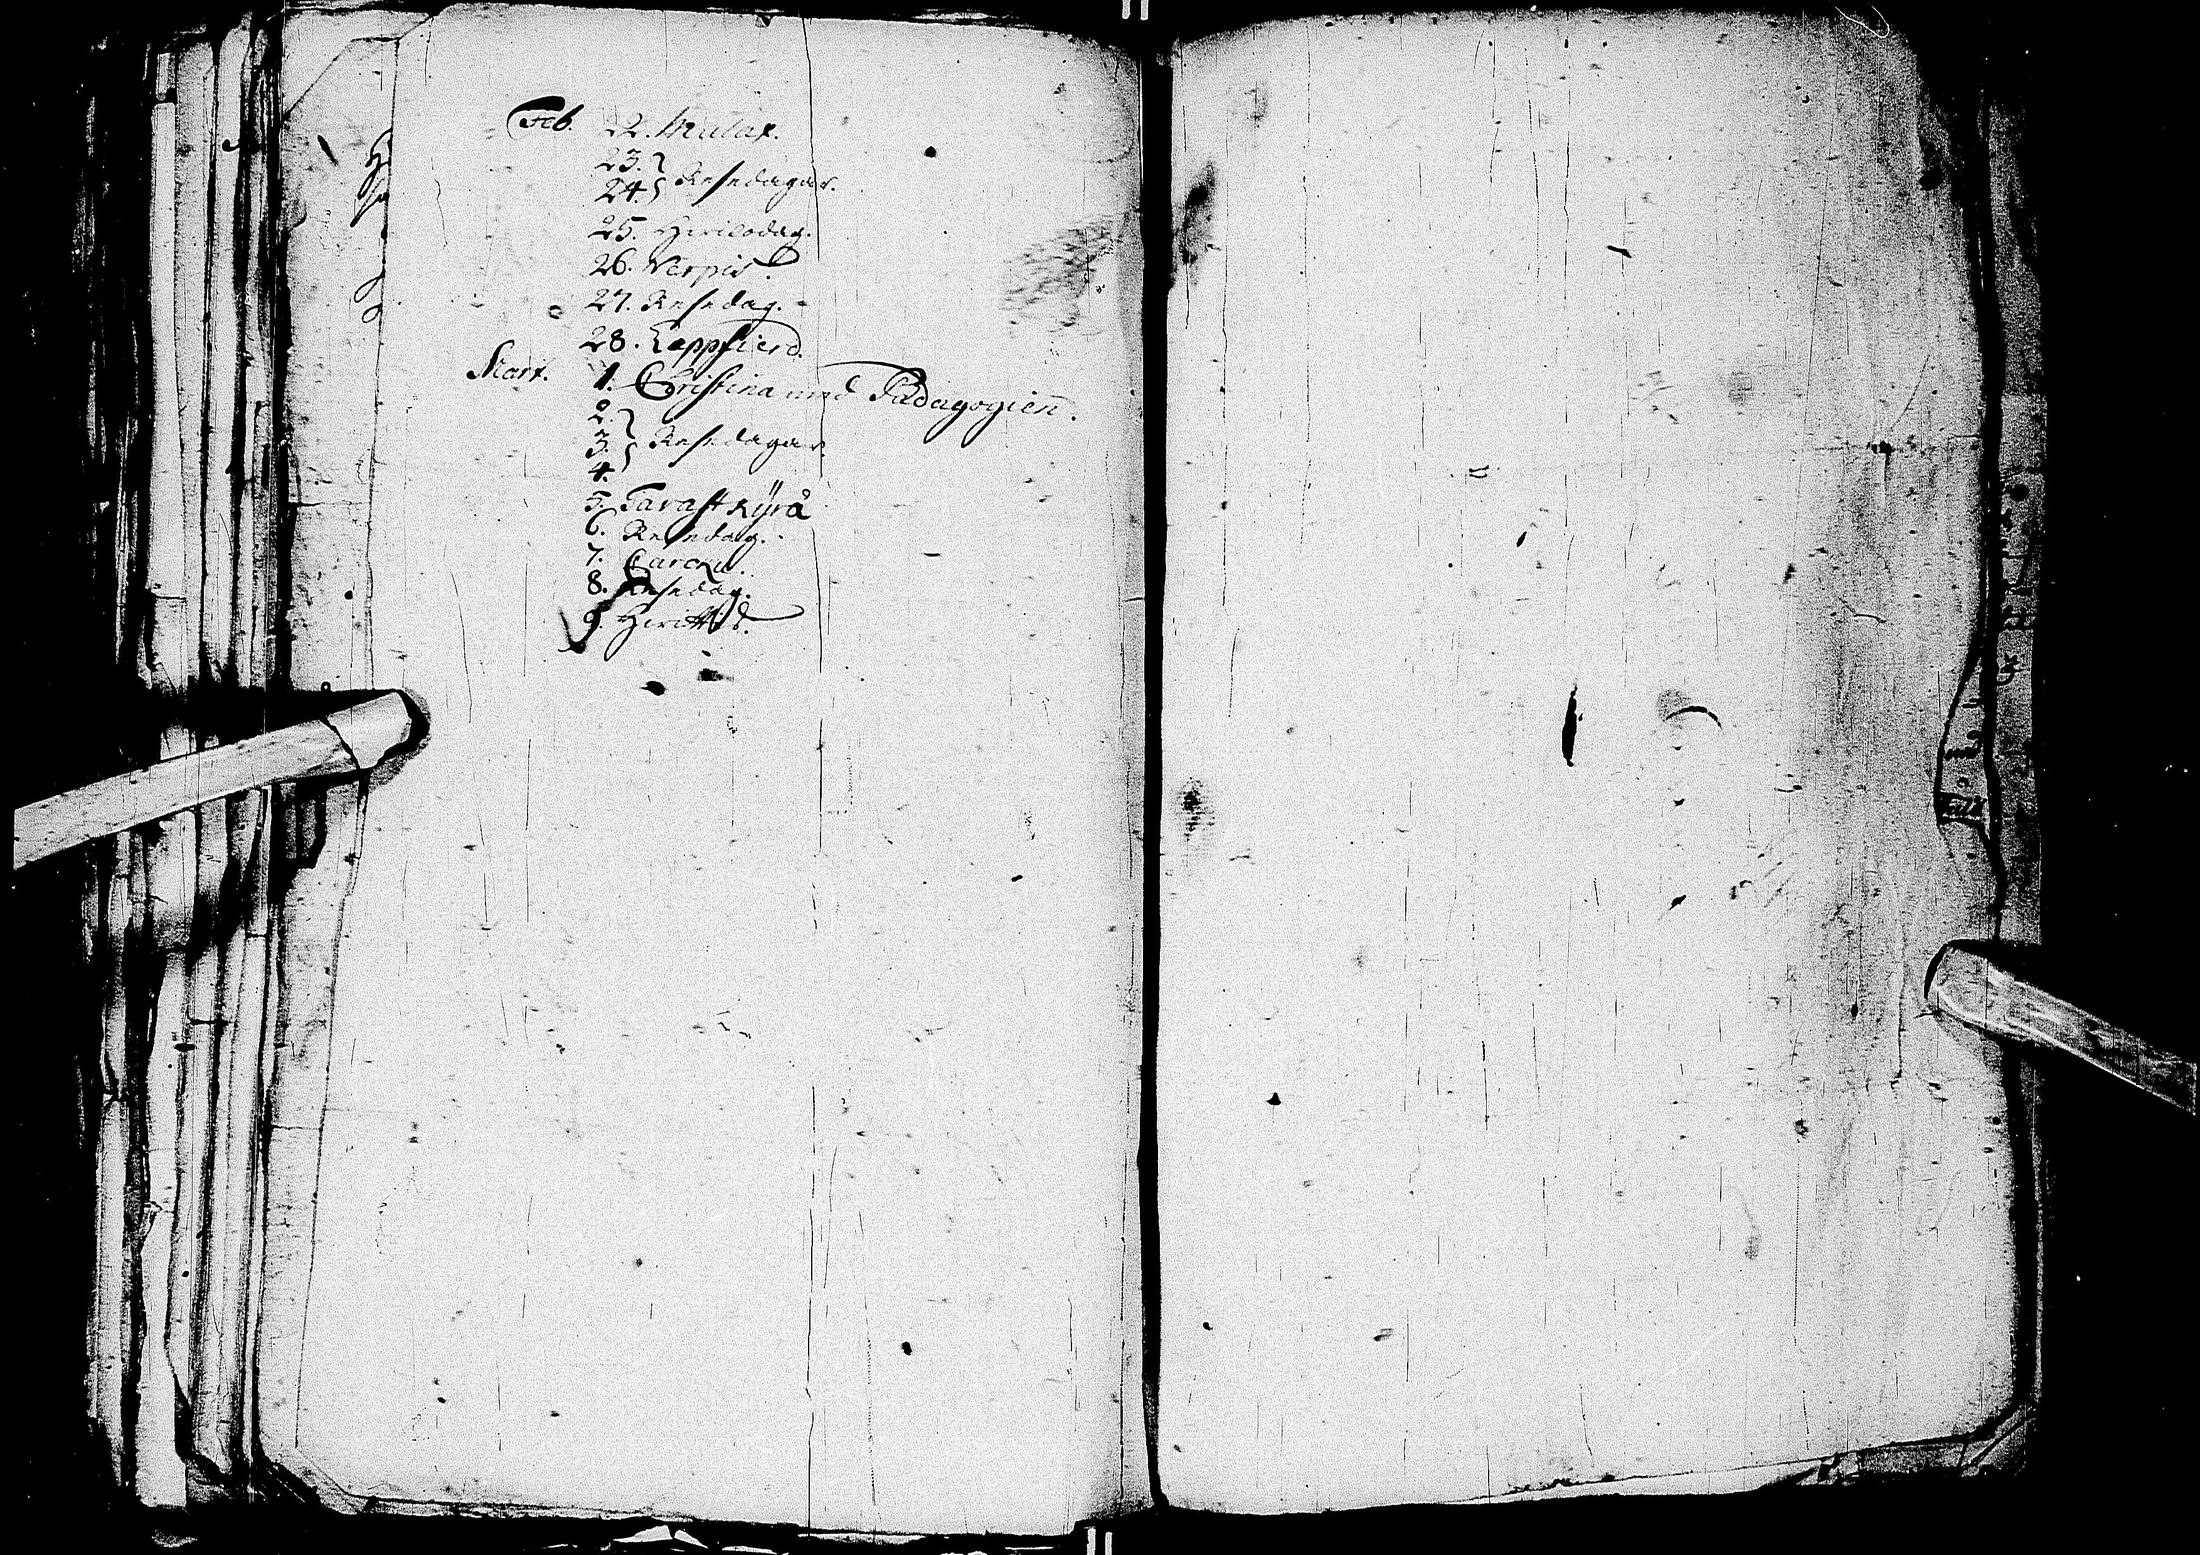 Feb. 22. Malax.
23.
24. Resedagar.
25. Hwilodag.
26. Nerpis.
27. Resedag.
28. Lappfierd.
Mart. 1. Christina med Pædagogien.
2.
3. Resedagar
4.
5. Tavastkÿrå
6. Resedag.
7. Carcku.
8. Resedag.
9.